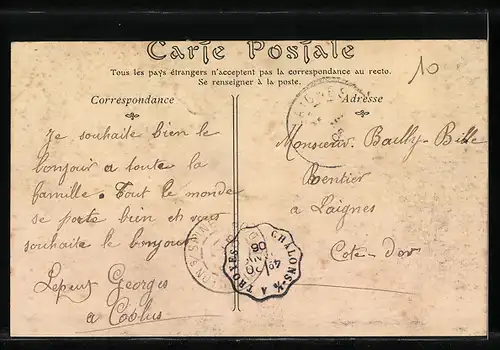 Carte Postale
Tous les pays étrangers n'acceptent pas la correspondance au recto.
Se renseigner à la poste.
Correspondance
Adresse
10
Je souhaite bien le
bonjour a toute la
famille. Tout le monde
se porte bien et vous
souhaite le bonjour
Georges
a
Monsieur Bailly-Bille
Rentier
a Laignes
Cote-d'or
CHALONS-S/M A TROYES